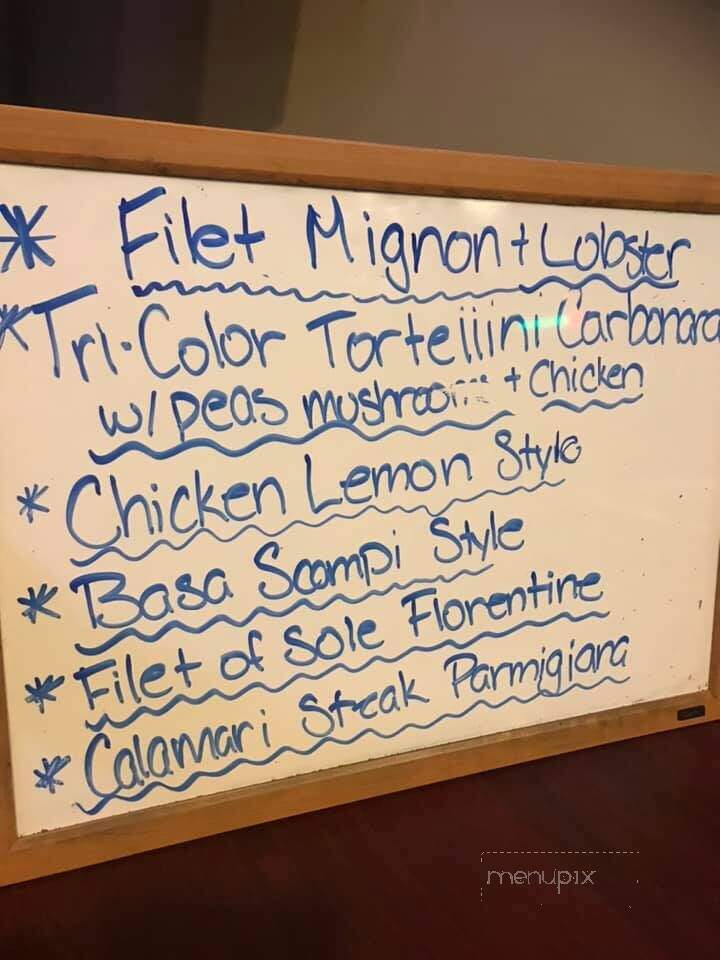 * Filet Mignon + Lobster
* Tri-Color Tortellini Carbonara
w/ peas mushrooms + Chicken
* Chicken Lemon Style
* Basa Scampi Style
* Filet of Sole Florentine
* Calamari Steak Parmigiana
menupix